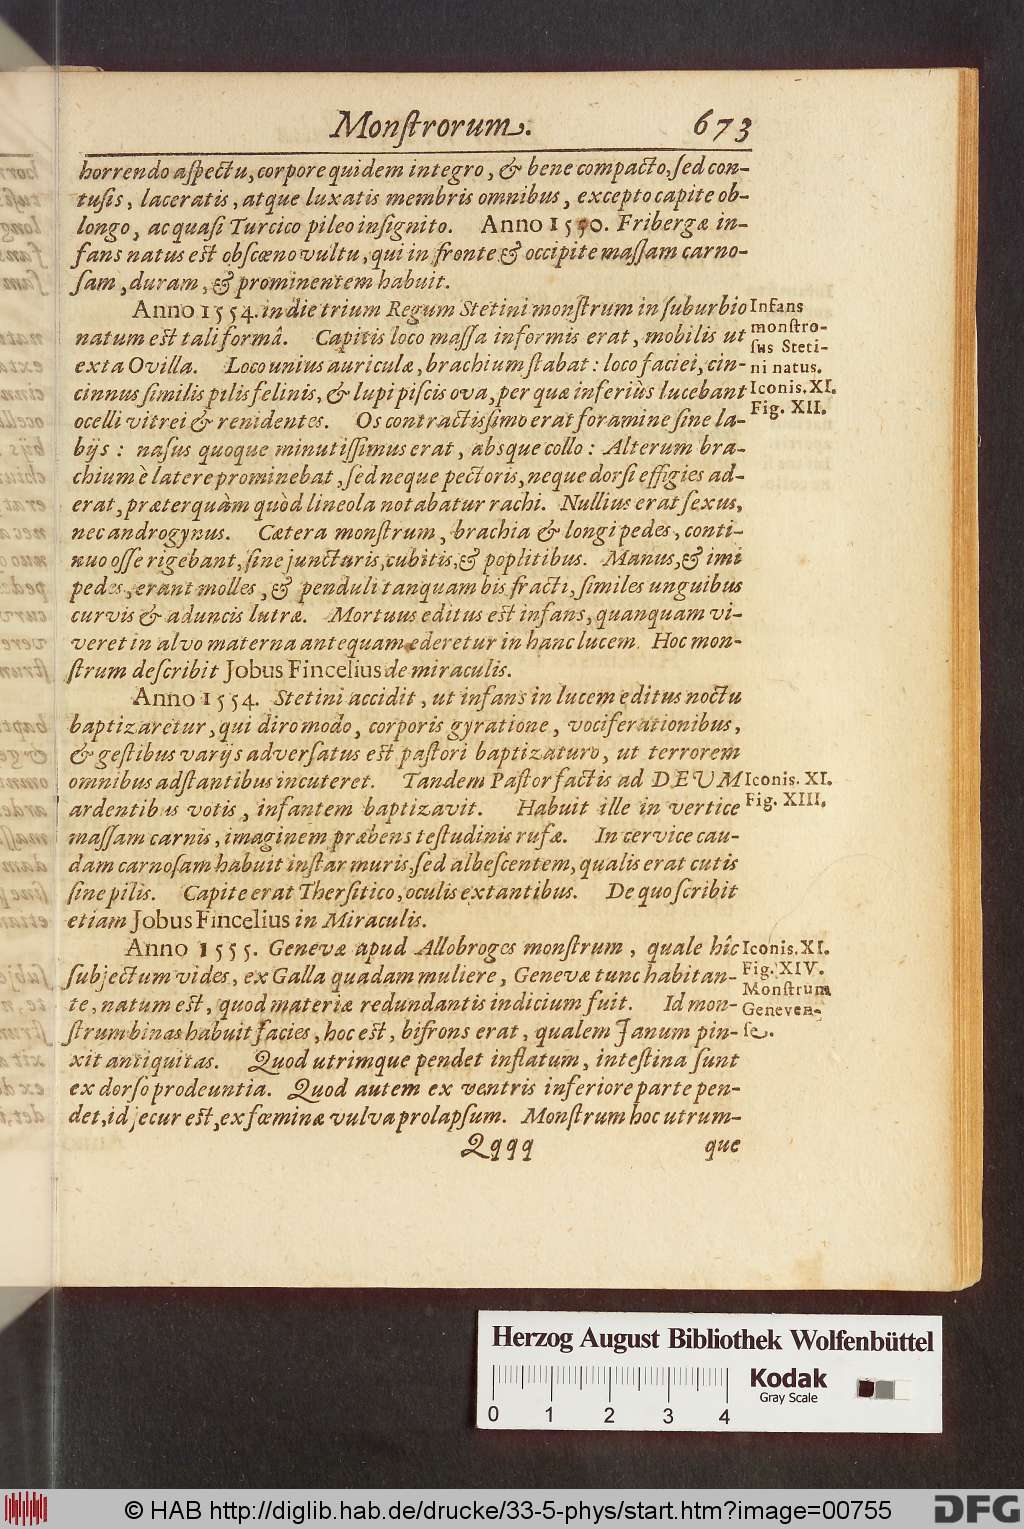 Monſtrorum.
673
horrendo aſpectu, corpore quidem integro, & bene compacto, ſed con-
tuſis, laceratis, atque luxatis membris omnibus, excepto capite ob-
longo, ac quaſi Turcico pileo inſignito. Anno 1550. Fribergæ in-
fans natus eſt obſcœno vultu, qui in fronte & occipite maſſam carno-
ſam, duram, & prominentem habuit.
Anno 1554. in die trium Regum Stetini monſtrum in ſuburbio
natum eſt tali formâ. Capitis loco maſſa informis erat, mobilis ut
exta Ovilla. Loco unius auriculæ, brachium ſtabat: loco faciei, cin-
cinnus ſimilis pilis felinis, & lupi piſcis ova, per quæ inferiùs lucebant
ocelli vitrei & renidentes. Os contractiſſimo erat foramine ſine la-
bijs: naſus quoque minutiſſimus erat, absque collo: Alterum bra-
chium è latere prominebat, ſed neque pectoris, neque dorſi effigies ad-
erat, præterquàm quòd lineola notabatur rachi. Nullius erat ſexus,
nec androgynus. Cætera monſtrum, brachia & longi pedes, conti-
nuo oſſe rigebant, ſine juncturis, cubitis, & poplitibus. Manus, & imi
pedes, erant molles, & penduli tanquam bis fracti, ſimiles unguibus
curvis & aduncis lutræ. Mortuus editus eſt infans, quanquam vi-
veret in alvo materna antequam ederetur in hanc lucem. Hoc mon-
ſtrum deſcribit Jobus Fincelius de miraculis.
Infans
monſtro-
ſus Steti-
ni natus.
Iconis. XI.
Fig. XII.
Anno 1554. Stetini accidit, ut infans in lucem editus noctu
baptizaretur, qui diro modo, corporis gyratione, vociferationibus,
& geſtibus varijs adverſatus eſt paſtori baptizaturo, ut terrorem
omnibus adſtantibus incuteret. Tandem Paſtor factis ad DEUM
ardentibus votis, infantem baptizavit. Habuit ille in vertice
maſſam carnis, imaginem præbens teſtudinis rufæ. In cervice cau-
dam carnoſam habuit inſtar muris, ſed albeſcentem, qualis erat cutis
ſine pilis. Capite erat Therſitico, oculis extantibus. De quo ſcribit
etiam Jobus Fincelius in Miraculis.
Iconis. XI.
Fig. XIII.
Anno 1555. Genevæ apud Allobroges monſtrum, quale hîc
ſubjectum vides, ex Galla quadam muliere, Genevæ tunc habitan-
te, natum eſt, quod materiæ redundantis indicium fuit. Id mon-
ſtrum binas habuit facies, hoc eſt, bifrons erat, qualem Janum pin-
xit antiquitas. Quod utrimque pendet inflatum, inteſtina ſunt
ex dorſo prodeuntia. Quod autem ex ventris inferiore parte pen-
det, id jecur eſt, ex fœminæ vulva prolapſum. Monſtrum hoc utrum-
Iconis. XI.
Fig. XIV.
Monſtrum
Geneven-
ſe.
Qqqq
que
Herzog August Bibliothek Wolfenbüttel
Kodak
Gray Scale
0 1 2 3 4
© HAB http://diglib.hab.de/drucke/33-5-phys/start.htm?image=00755
DFG